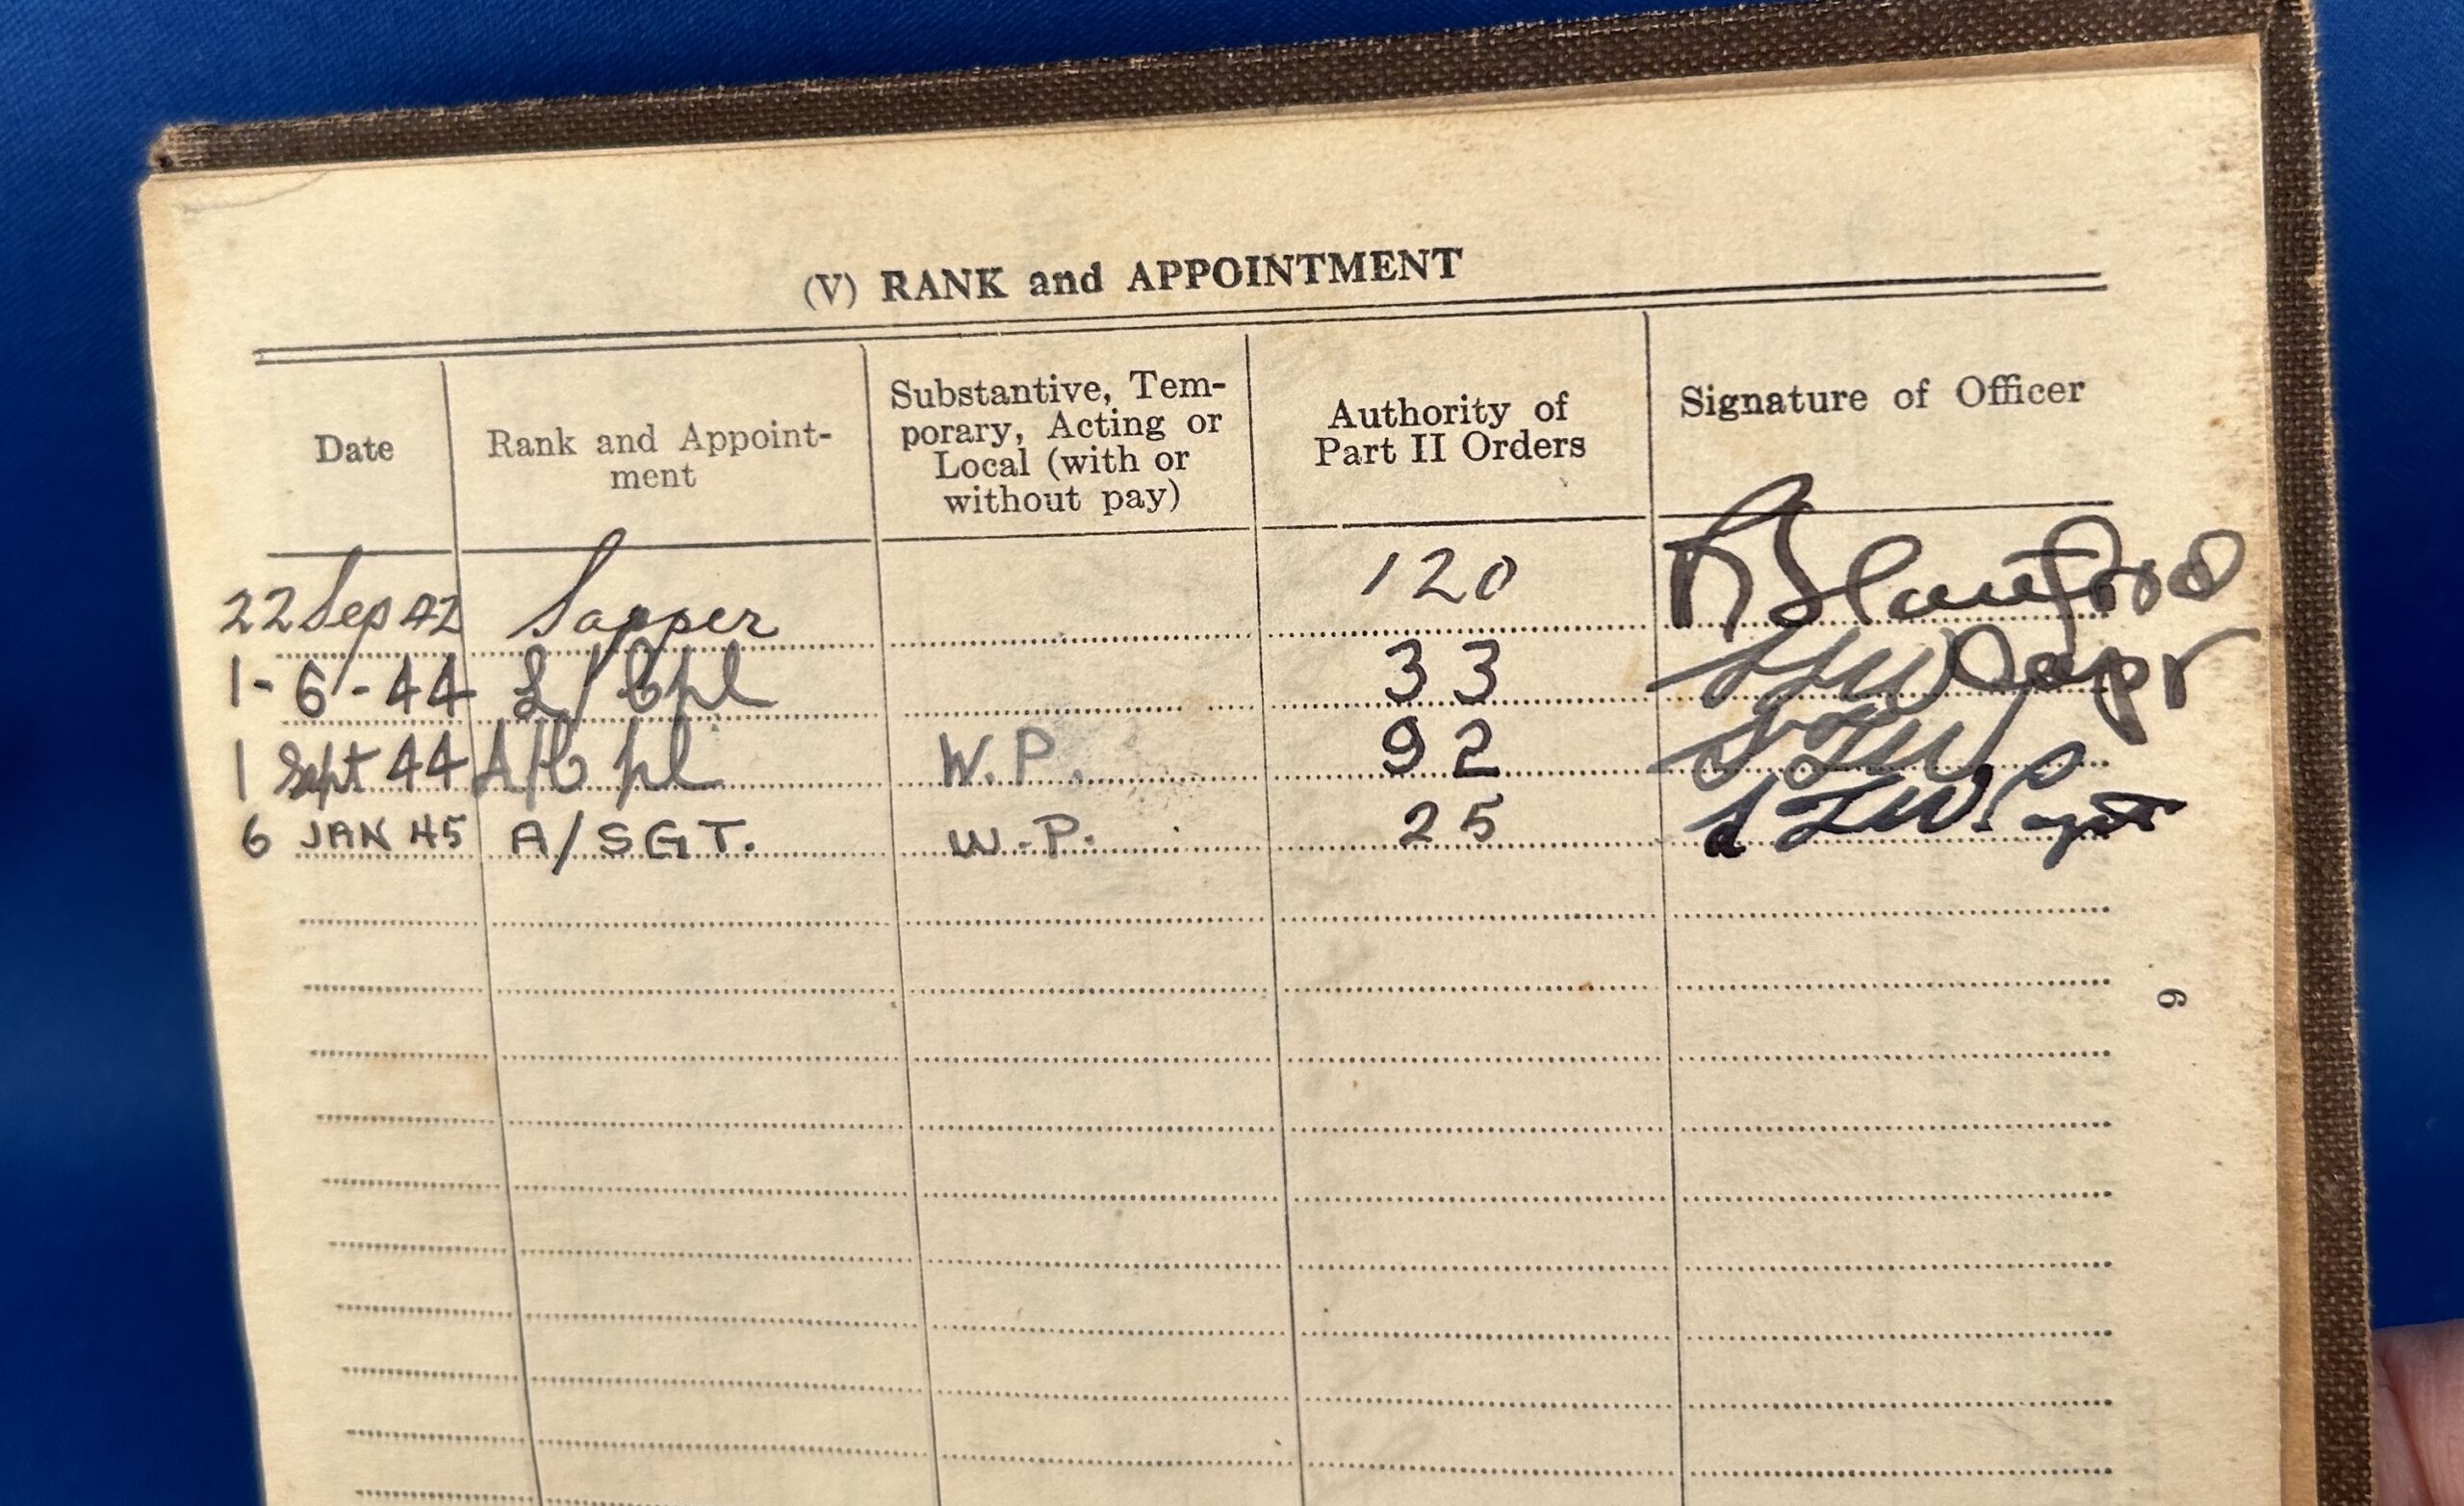 (V) RANK and APPOINTMENT
Date
Rank and Appoint-
ment
Substantive, Tem-
porary, Acting or
Local (with or
without pay)
Authority of
Part II Orders
Signature of Officer
22 Sep 42 Sapper 120
1-6-44 L/Cpl 33
1 Sept 44 A/Cpl W.P. 92
6 JAN 45 A/SGT. W.P. 25
9